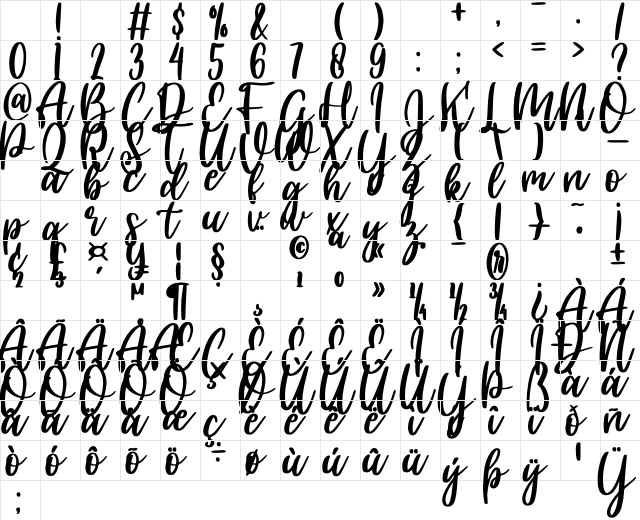 ! # $ % & ( ) + , - . /
0 1 2 3 4 5 6 7 8 9 : ; < = > ?
@ A B C D E F G H I J K L M N O
P Q R S T U V W X Y Z ( \ ) _
a b c d e f g h i j k l m n o
p q r s t u v w x y z { | } ~ ¡
¢ £ ¤ ¥ ¦ § © ª « ® ±
² ³ ´ µ ¶ · ¸ ¹ º » ¼ ½ ¾ ¿ À Á
Â Ã Ä Å Æ Ç È É Ê Ë Ì Í Î Ï Ð Ñ
Ò Ó Ô Õ Ö × Ø Ù Ú Û Ü Ý Þ ß à á
â ã ä å æ ç è é ê ë ì í î ï ð ñ
ò ó ô õ ö ÷ ø ù ú û ü ý þ ÿ ' Ÿ
;